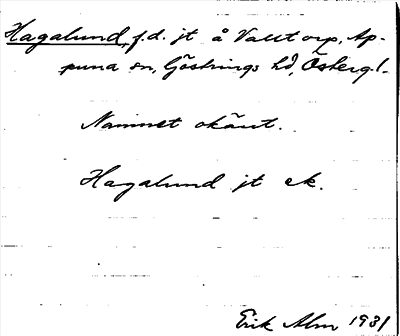 Hagalund, f.d. jt å Valstorp, Ap-
puna sn, Göstrings hd, Östergl.
Namnet okänt.
Hagalund jt ek.
Erik Alm 1931